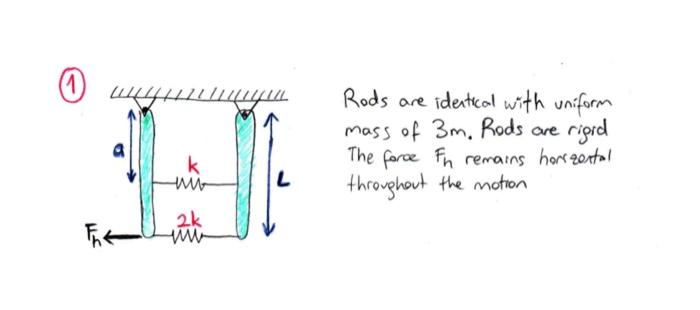 1
Rods are identical with uniform
mass of 3m. Rods are rigid
The force Fh remains horizontal
throughout the motion
a
k
L
2k
Fh